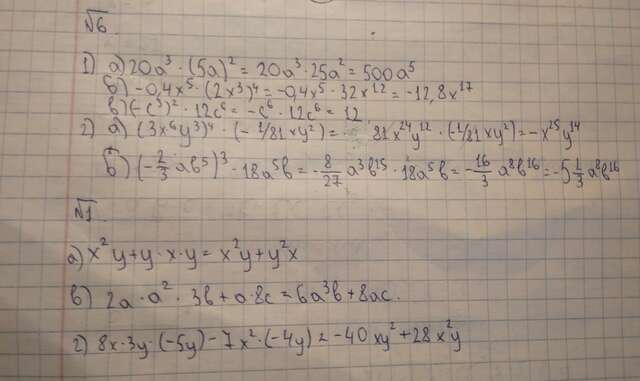 №6
1) а) 20a³ · (5a)² = 20a³ · 25a² = 500a⁵
б) -0,4x⁵ · (2x³)⁴ = -0,4x⁵ · 32x¹² = -12,8x¹⁷
в) (-c³)² · 12c⁶ = -c⁶ · 12c⁶ = 12
2) а) (3x⁶y³)⁴ · (-1/81xy²) = 81x²⁴y¹² · (-1/81xy²) = -x²⁵y¹⁴
б) (-2/3 ab⁵)³ · 18a⁵b = -8/27 a³b¹⁵ · 18a⁵b = -16/3 a⁸b¹⁶ = -5 1/3 a⁸b¹⁶
№1
а) x²y+y·x·y = x²y+y²x
в) 2a·a²·3b+a·8c = 6a³b+8ac.
г) 8x·3y·(-5y)-7x²·(-4y) = -40xy²+28x²y